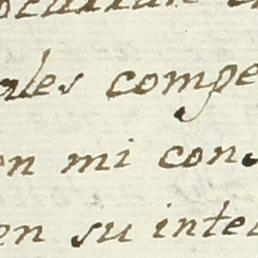 ales compe
on mi cons
en su inte